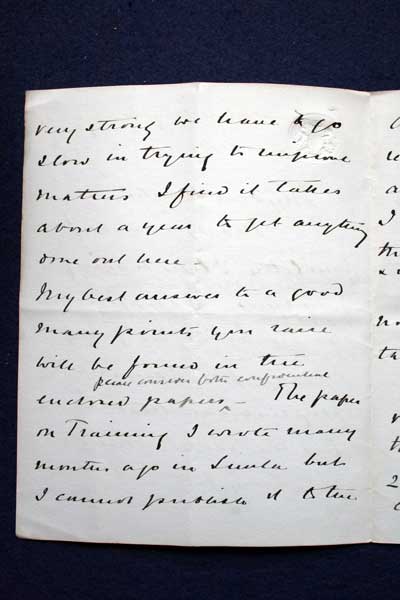 very strong we have to go
slow in trying to improve
matters I find it takes
about a year to get anything
done out here -
My best answers to a good
many points you raise
will be found in the
please consider both confidential
enclosed papers - The paper
on Training I wrote many
months ago in Simla but
I cannot publish it to the